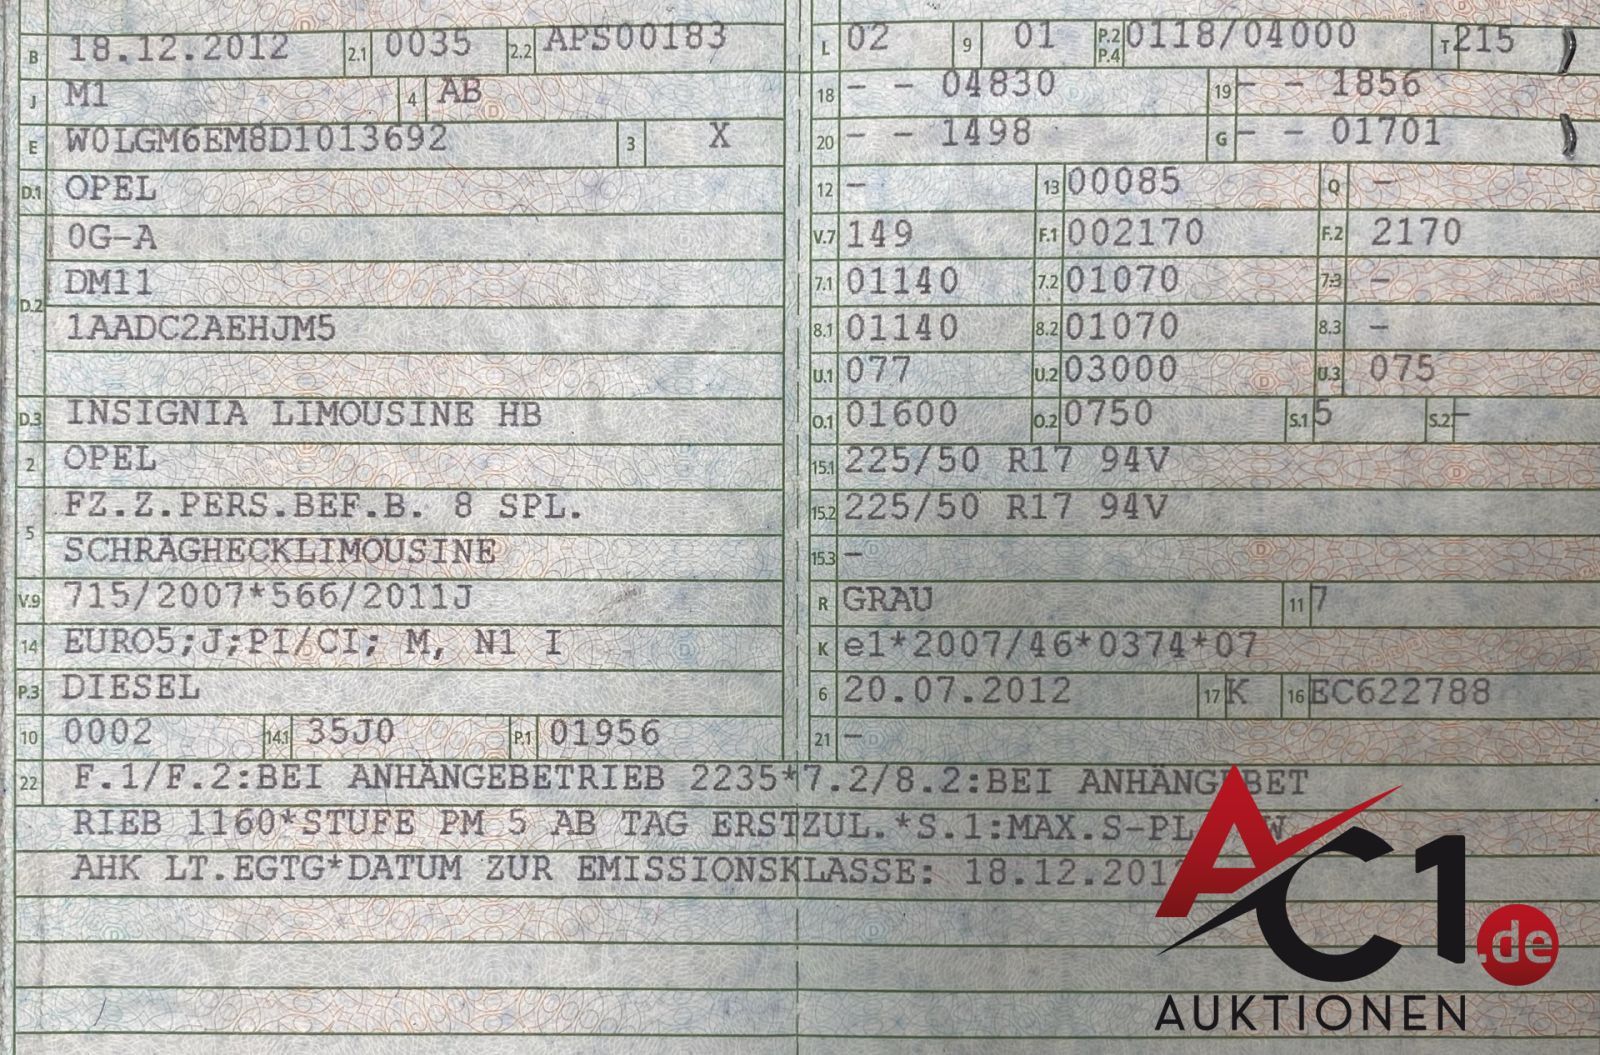 B 18.12.2012 2.1 0035 2.2 APS00183
J M1 4 AB
E W0LGM6EM8D1013692 3 X
D.1 OPEL
0G-A
DM11
D.2
1AADC2AEHJM5
D.3 INSIGNIA LIMOUSINE HB
2 OPEL
FZ.Z.PERS.BEF.B. 8 SPL.
5
SCHRÄGHECKLIMOUSINE
V.9 715/2007*566/2011J
14 EURO5;J;PI/CI; M, N1 I
P.3 DIESEL
10 0002 14.1 35J0 P.1 01956
L 02 9 01 P.2 P.4 0118/04000 T 215
18 - - 04830 19 - - 1856
20 - - 1498 G - - 01701
12 - 13 00085 Q -
V.7 149 F.1 002170 F.2 2170
7.1 01140 7.2 01070 7.3 -
8.1 01140 8.2 01070 8.3 -
U.1 077 U.2 03000 U.3 075
O.1 01600 O.2 0750 S.1 5 S.2 -
15.1 225/50 R17 94V
15.2 225/50 R17 94V
15.3 -
R GRAU 11 7
K e1*2007/46*0374*07
6 20.07.2012 17 K 16 EC622788
21 -
22 F.1/F.2:BEI ANHÄNGEBETRIEB 2235*7.2/8.2:BEI ANHÄNGEBET
RIEB 1160*STUFE PM 5 AB TAG ERSTZUL.*S.1:MAX.S-PL W.
AHK LT.EGTG*DATUM ZUR EMISSIONSKLASSE: 18.12.201
AC1.de
AUKTIONEN